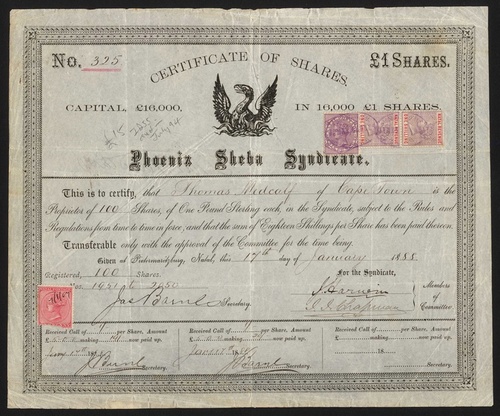 No. 325
CERTIFICATE OF SHARES.
£1 SHARES.
CAPITAL, £16,000,
IN 16,000 £1 SHARES.
£15
Phoenix Sheba Syndicate.
This is to certify, that Thomas Medcalf of Cape Town is the
Proprietor of 100 Shares, of One Pound Sterling each, in the Syndicate, subject to the Rules and
Regulations from time to time in force, and that the sum of Eighteen Shillings per Share has been paid thereon.
Transferable only with the approval of the Committee for the time being.
Given at Pietermaritzburg, Natal, this 17th day of January 1888.
Registered, 100 Shares.
For the Syndicate,
Nos.
Secretary.
Members
of
Committee
Received Call of per Share, Amount
£ making now paid up.
Secretary.
Received Call of per Share, Amount
£ making now paid up.
Secretary.
Received Call of per Share, Amount
£ making now paid up.
18
Secretary.